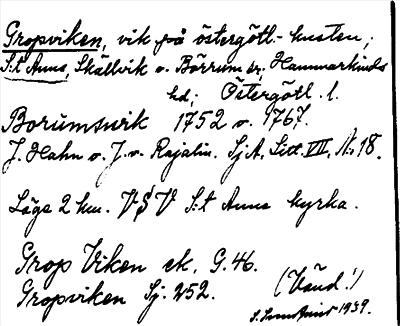 Gropviken, vik på östergötl.- kusten;
S:t Anna, Skällvik o. Börrum sr; Hammarkinds
hd; Östergötl. l.
Borumsvik 1752 o. 1767.
J. Hahn o. J. v. Rajalin. Sj A, Litt. VIII, N: 18.
Läge 2 km. VSV S:t Anna kyrka.
Grop Viken ek. G. 46.
Gropviken Sj. 252.
(Vänd!)
1939.